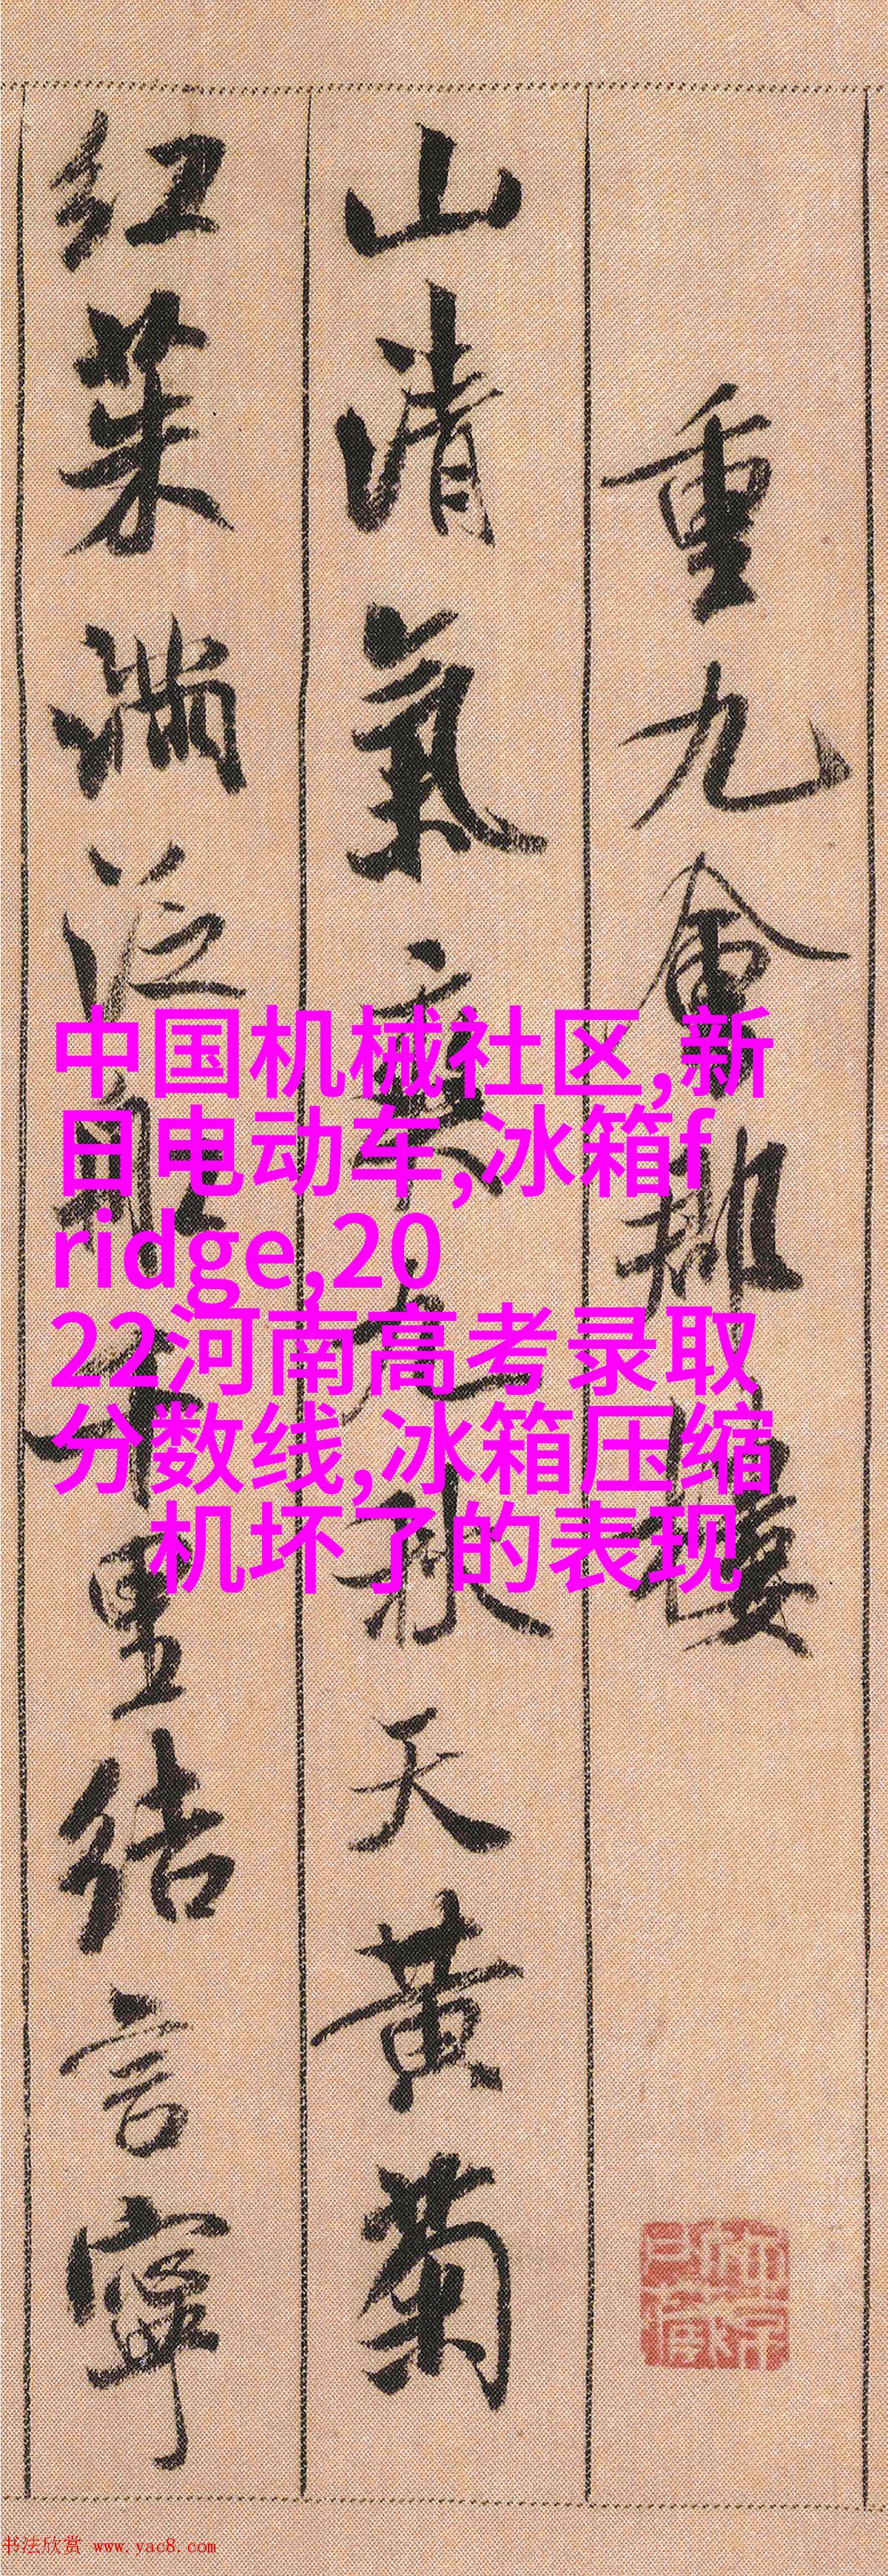 重九會郡樓
山清氣爽九秋天黄菊
紅茱滿泛船千里結言寧
中国机械社区,新
日电动车,冰箱f
ridge,20
22河南高考录取
分数线,冰箱压缩
机坏了的表现
书法欣赏 www.yac8.com